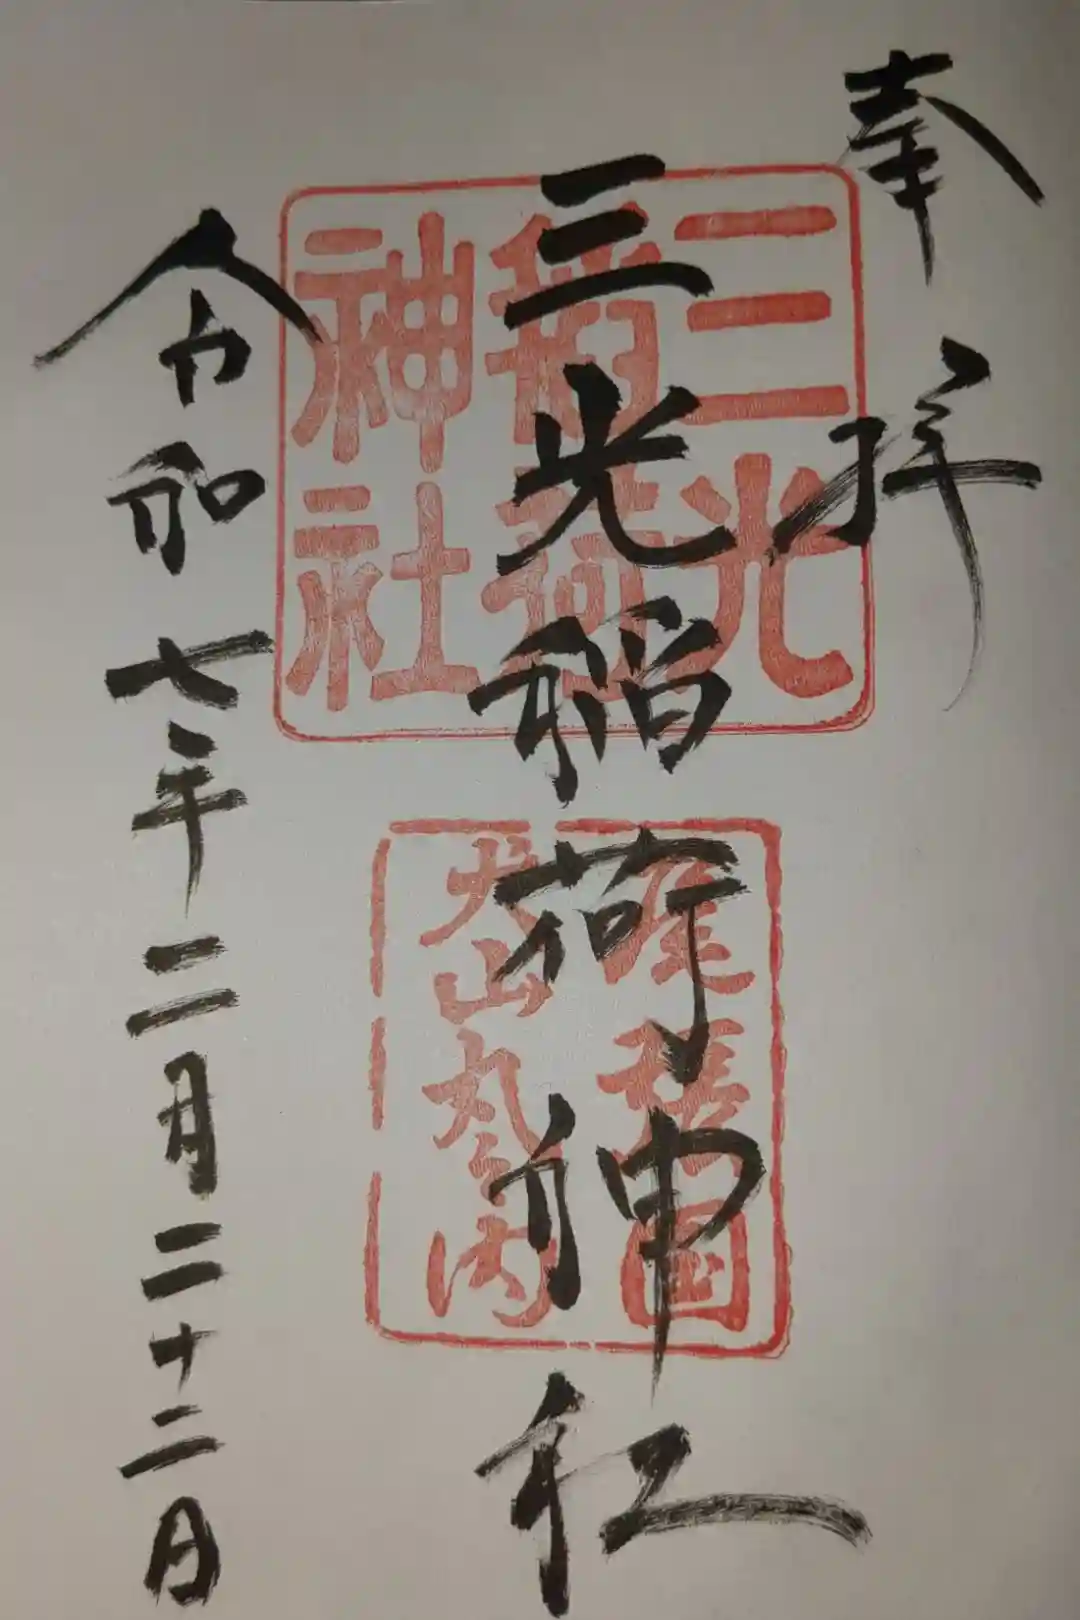 奉拝
三光稲荷神社
三光
稲荷
神社
尾張国
犬山丸之内
令和七年二月二十二日